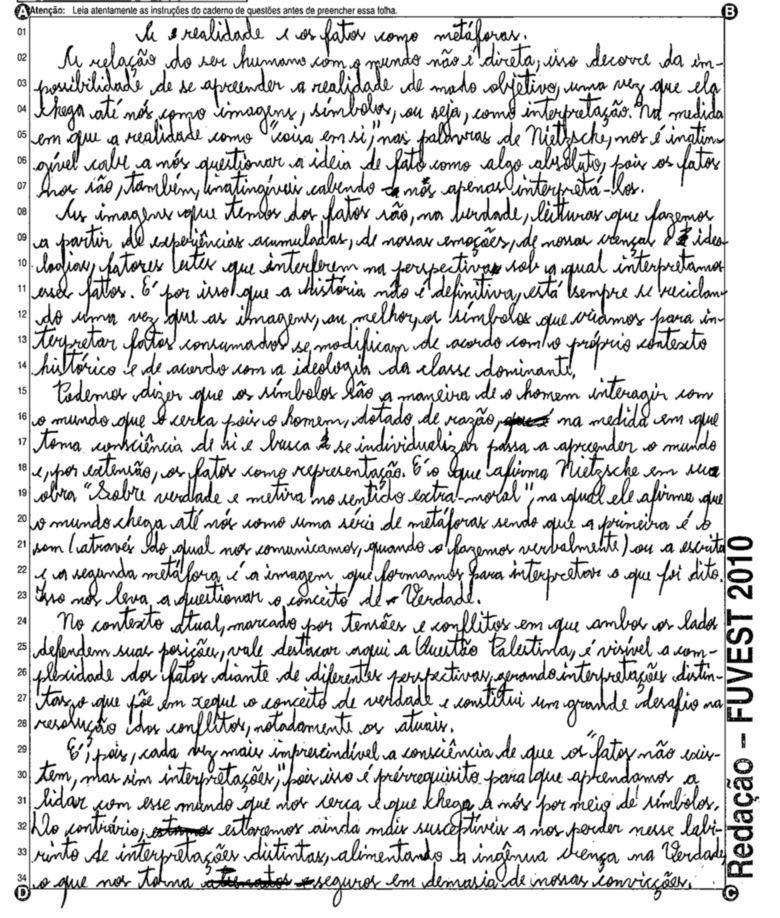 Atenção: Leia atentamente as instruções do caderno de questões antes de preencher essa folha.
A realidade e os fatos como metáforas.
A relação do ser humano com o mundo não é direta; isso decorre da im-
possibilidade de se apreender a realidade de modo objetivo, uma vez que ela
chega até nós como imagens, símbolos, ou seja, como interpretação. Na medida
em que a realidade como "coisa em si", nas palavras de Nietzsche, nos é inatin-
gível cabe a nós questionar a ideia de fato como algo absoluto, pois os fatos
nos são, também, inatingíveis cabendo a nós apenas interpretá-los.
As imagens que temos dos fatos são, na verdade, leituras que fazemos
a partir de experiências acumuladas, de nossas emoções, de nossas crenças e ideo-
logias, fatores estes que interferem na perspectiva sob a qual interpretamos
esses fatos. É por isso que a história não é definitiva, está sempre se reciclan-
do uma vez que as imagens, ou melhor, os símbolos que criamos para in-
terpretar fatos consumados se modificam de acordo com o próprio contexto
histórico e de acordo com a ideologia da classe dominante.
Podemos dizer que os símbolos são a maneira de o homem interagir com
o mundo que o cerca pois o homem, dotado de razão, na medida em que
toma consciência de si e busca se individualizar passa a apreender o mundo
e, por extensão, os fatos como representação. É o que afirma Nietzsche em sua
obra "Sobre verdade e metira no sentido extra-moral", na qual ele afirma que
o mundo chega até nós como uma série de metáforas sendo que a primeira é o
som (através do qual nos comunicamos, quando o fazemos verbalmente) ou a escrita
e a segunda metáfora é a imagem que formamos para interpretar o que foi dito.
Isso nos leva a questionar o conceito de Verdade.
No contexto atual, marcado por tensões e conflitos em que ambos os lados
defendem suas posições, vale destacar aqui a Questão Palestina, é visível a com-
plexidade dos fatos diante de diferentes perspectivas, gerando interpretações distin-
tas, o que põe em xeque o conceito de verdade e constitui um grande desafio na
resolução dos conflitos, notadamente os atuais.
É, pois, cada vez mais imprescindível a consciência de que os "fatos não exis-
tem, mas sim interpretações", pois isso é prérrequisito para que aprendamos a
lidar com esse mundo que nos cerca e que chega a nós por meio de símbolos.
Do contrário, estaremos ainda mais susceptíveis a nos perder nesse labi-
rinto de interpretações distintas, alimentando a ingênua crença na Verdade
o que nos torna seguros em demasia de nossas convicções.
Redação – FUVEST 2010